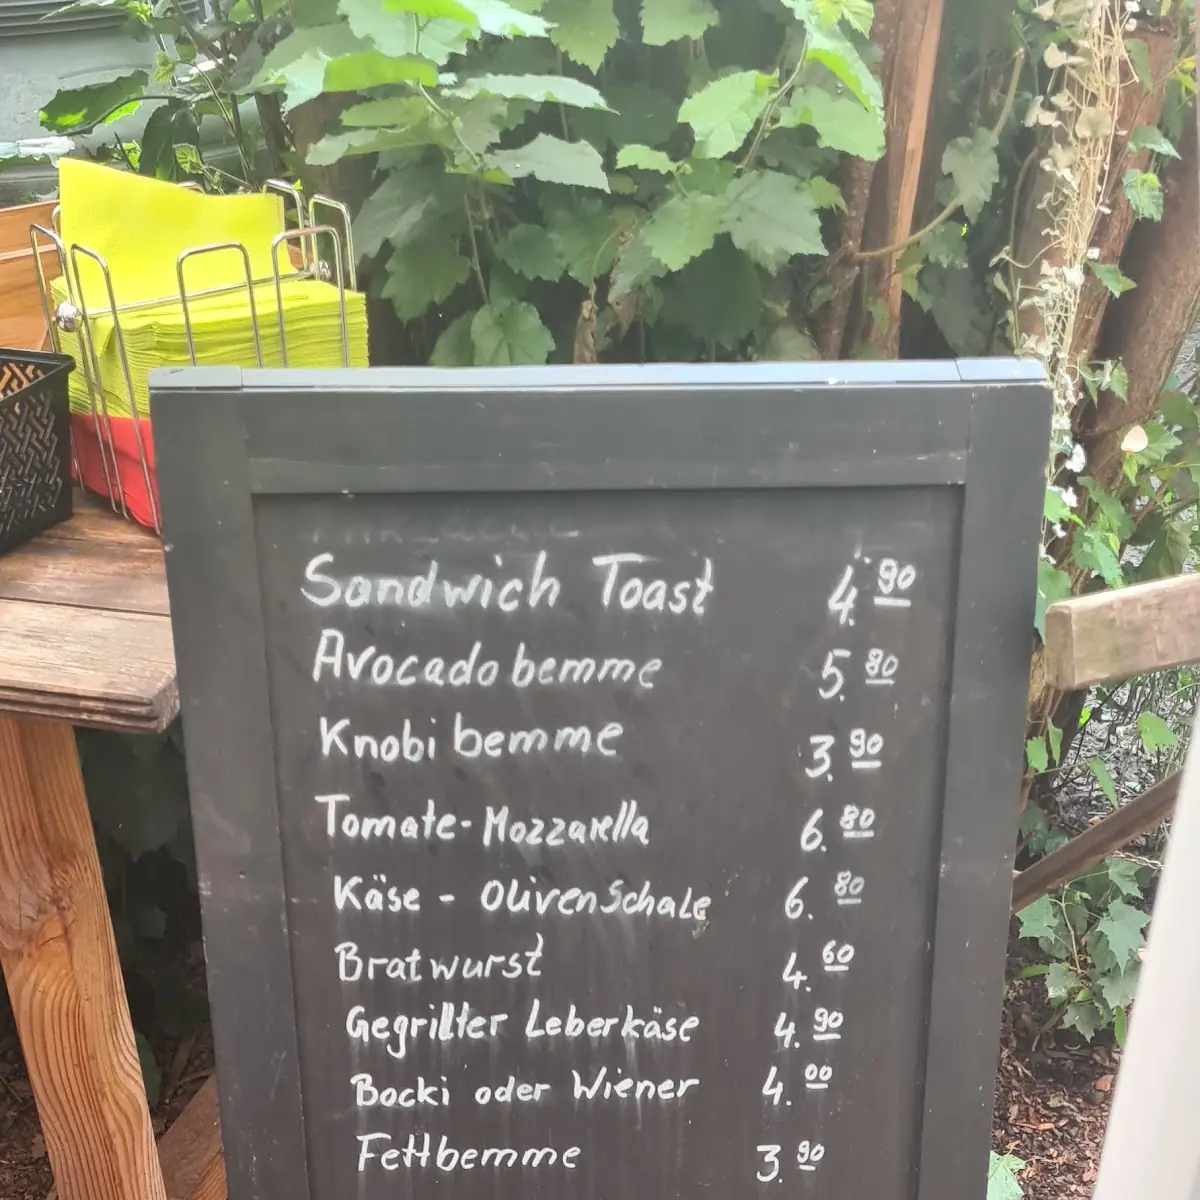 Sandwich Toast 4.90
Avocadobemme 5.80
Knobibemme 3.90
Tomate-Mozzarella 6.80
Käse - Olivenschale 6.80
Bratwurst 4.60
Gegrillter Leberkäse 4.90
Bocki oder Wiener 4.00
Fettbemme 3.90